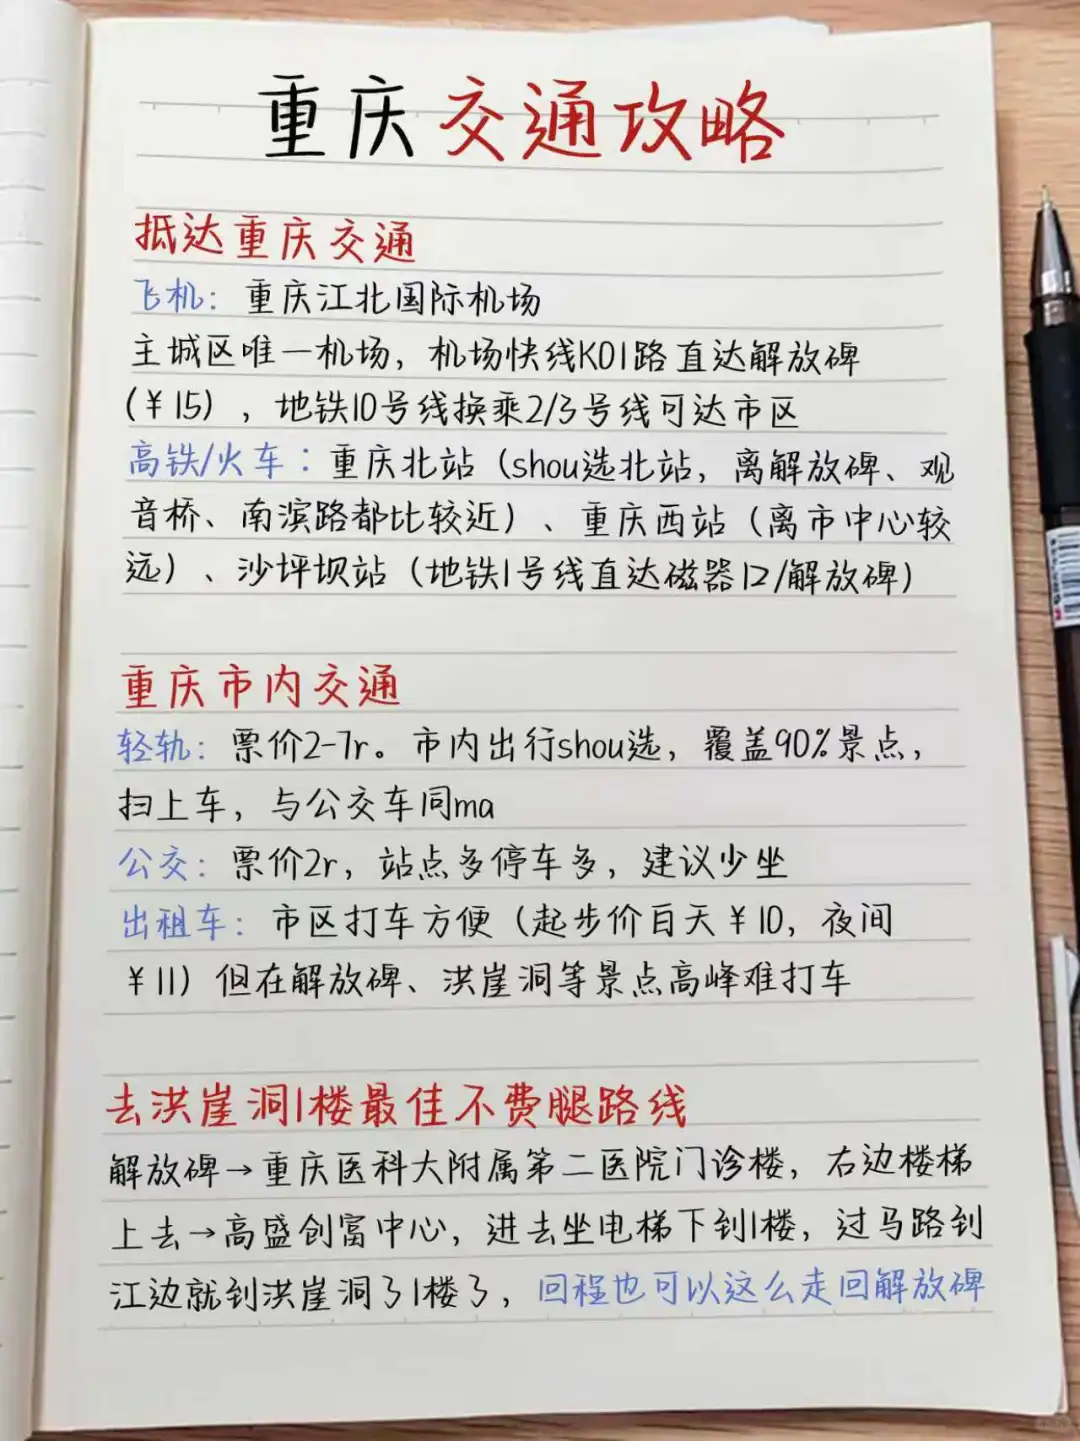 重庆交通攻略
抵达重庆交通
飞机：重庆江北国际机场
主城区唯一机场，机场快线K01路直达解放碑
(￥15)，地铁10号线换乘2/3号线可达市区
高铁/火车：重庆北站（shou选北站，离解放碑、观
音桥、南滨路都比较近）、重庆西站（离市中心较
远）、沙坪坝站（地铁1号线直达磁器口/解放碑）
重庆市内交通
轻轨：票价2-7r。市内出行shou选，覆盖90%景点，
扫上车，与公交车同ma
公交：票价2r，站点多停车多，建议少坐
出租车：市区打车方便（起步价白天￥10，夜间
￥11）但在解放碑、洪崖洞等景点高峰难打车
去洪崖洞1楼最佳不费腿路线
解放碑→重庆医科大附属第二医院门诊楼，右边楼梯
上去→高盛创富中心，进去坐电梯下到1楼，过马路到
江边就到洪崖洞了1楼了，回程也可以这么走回解放碑